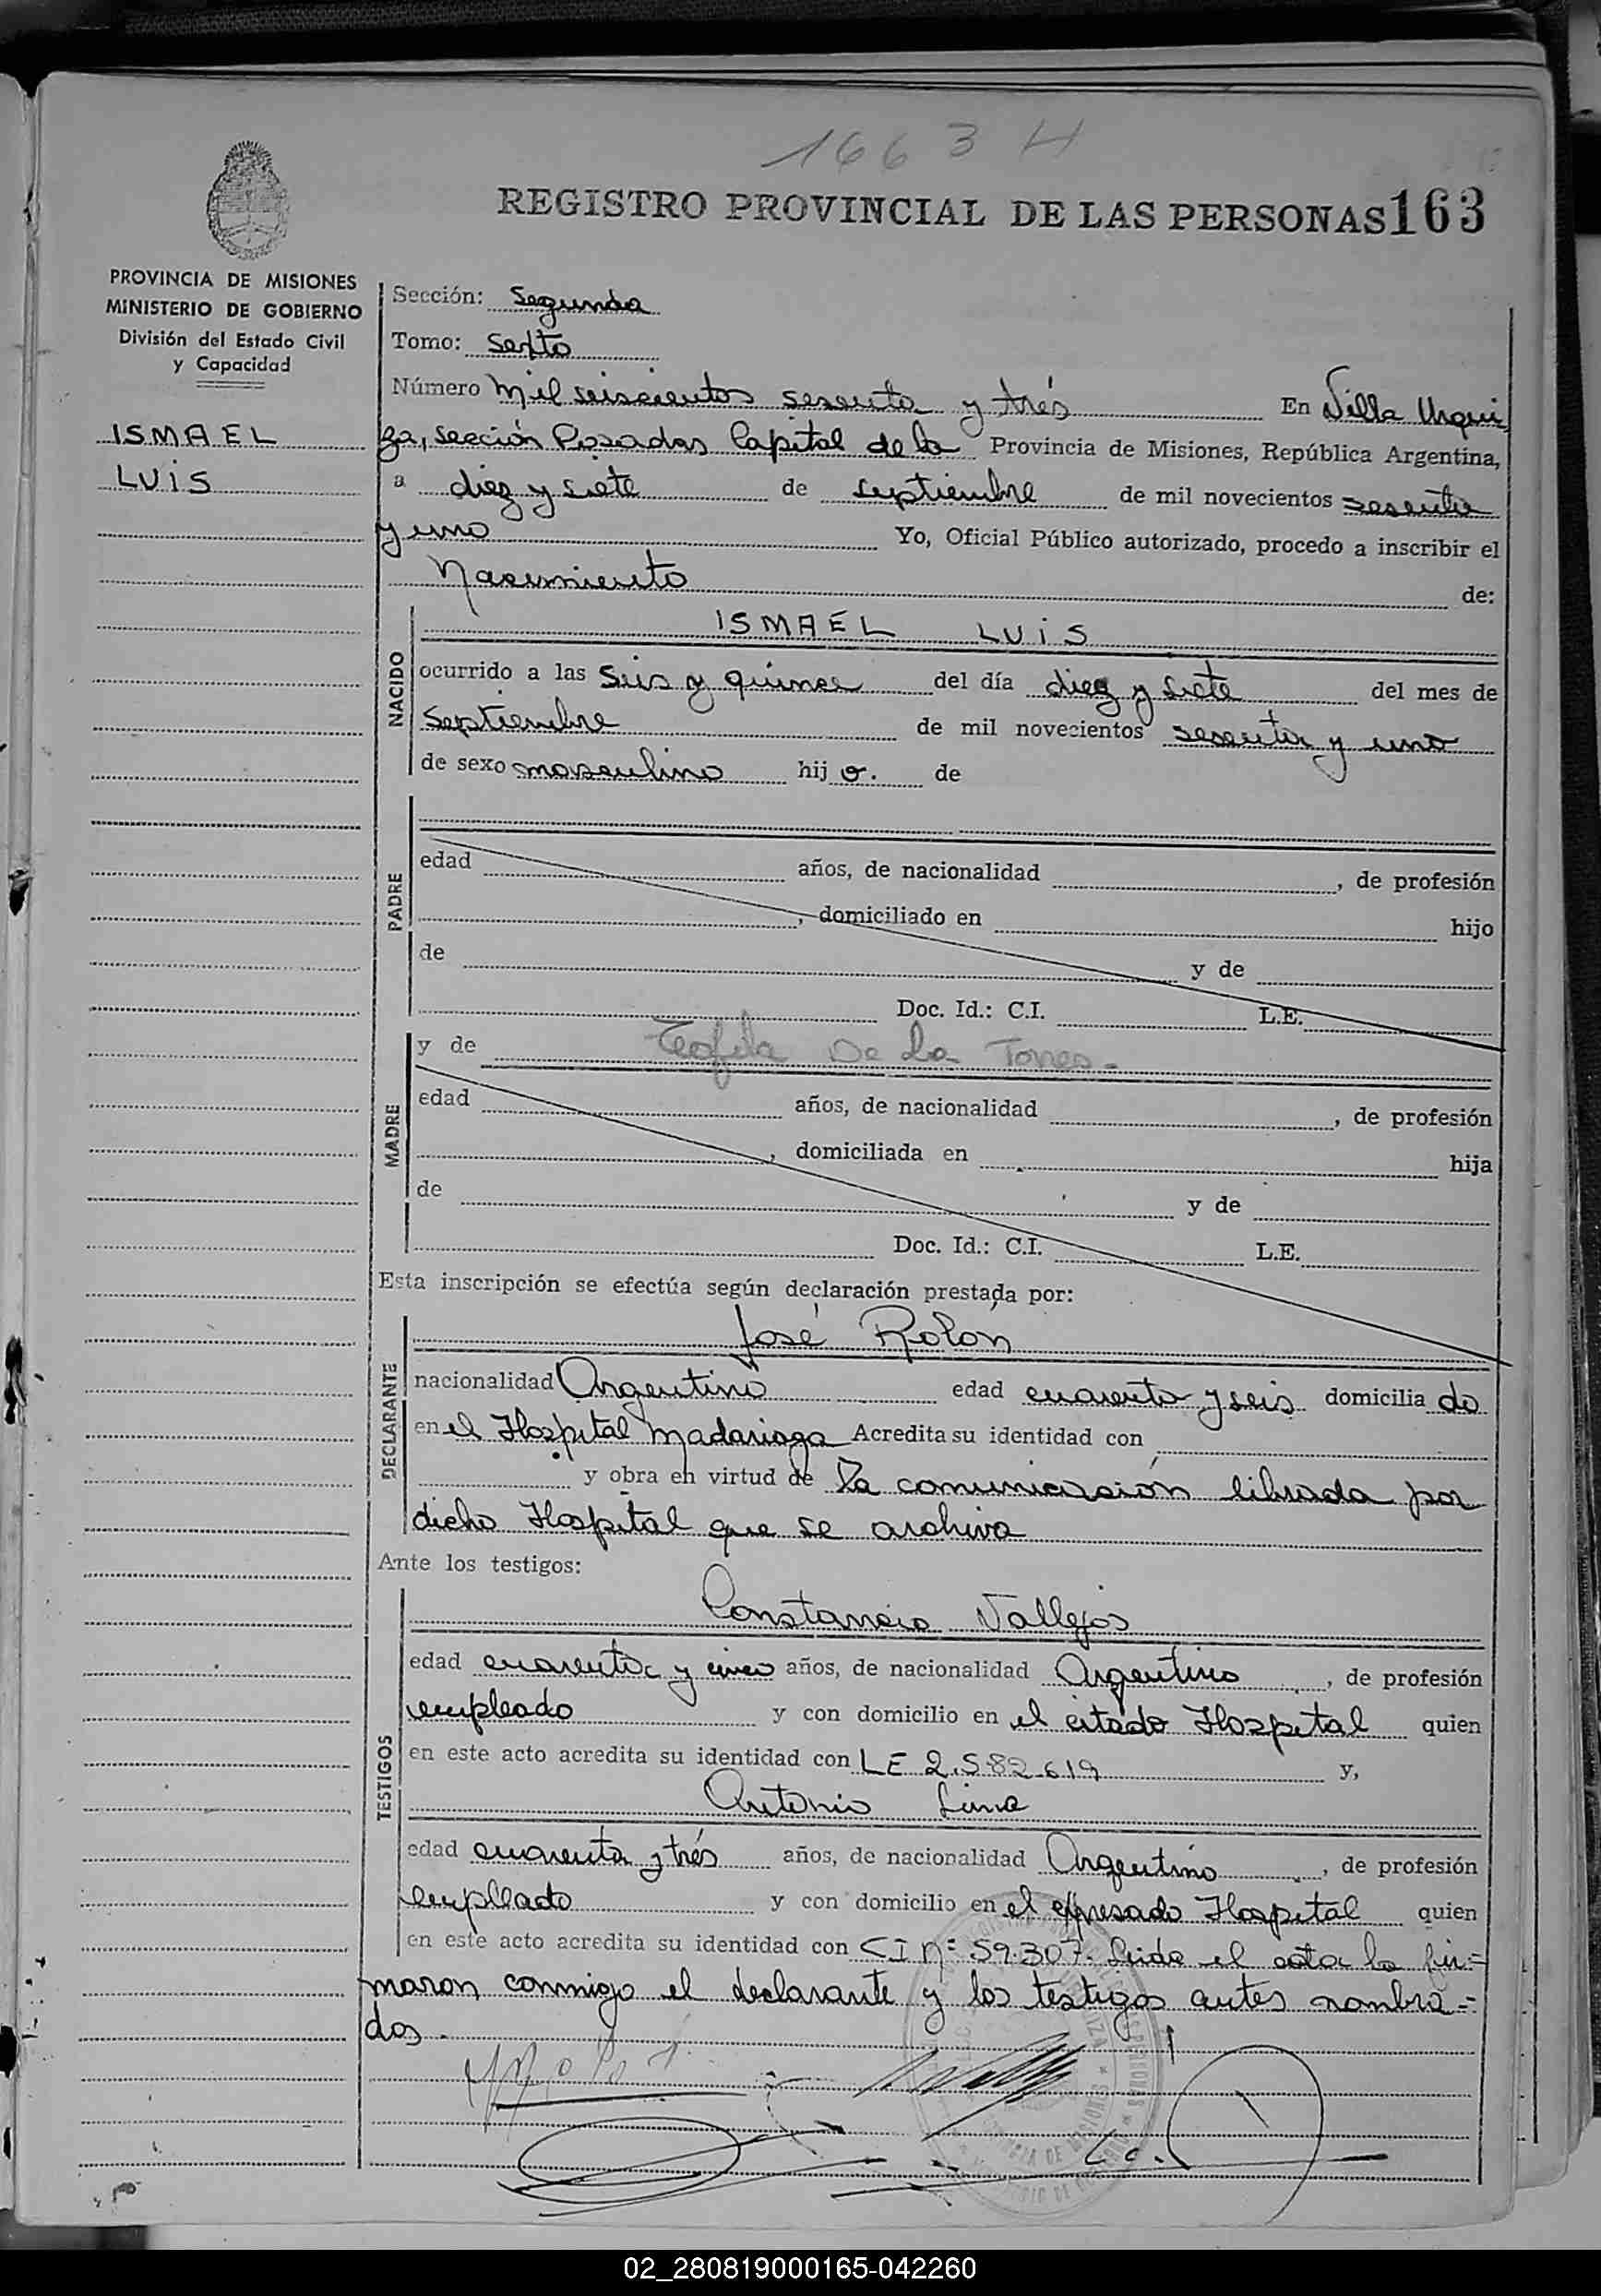 1663 H
REGISTRO PROVINCIAL DE LAS PERSONAS 163
PROVINCIA DE MISIONES
MINISTERIO DE GOBIERNO
División del Estado Civil
y Capacidad
ISMAEL
LUIS
Sección: Segunda
Tomo: Sexto
Número Mil seiscientos sesenta y trés En Villa Urqui
za, sección Posadas Capital de la Provincia de Misiones, República Argentina,
a diez y siete de septiembre de mil novecientos sesenta
y uno Yo, Oficial Público autorizado, procedo a inscribir el
Nacimiento de:
NACIDO
ISMAEL LUIS
ocurrido a las seis y quince del día diez y siete del mes de
septiembre de mil novecientos sesenta y uno
de sexo masculino hijo. de
PADRE
edad años, de nacionalidad , de profesión
, domiciliado en hijo
de y de
Doc. Id.: C.I. L.E.
MADRE
y de Teofila De La Torres.-
edad años, de nacionalidad , de profesión
, domiciliada en hija
de y de
Doc. Id.: C.I. L.E.
Esta inscripción se efectúa según declaración prestada por:
DECLARANTE
José Rolón
nacionalidad Argentino edad cuarenta y seis domicilia do
en el Hospital Madariaga Acredita su identidad con
y obra en virtud de La comunicasión librada por
dicho Hospital que se archiva
Ante los testigos:
TESTIGOS
Constancio Vallejos
edad cuarenta y cinco años, de nacionalidad Argentino , de profesión
empleado y con domicilio en el citado Hospital quien
en este acto acredita su identidad con LE 2.582.619 y,
Antonio Lima
edad cuarenta y trés años, de nacionalidad Argentino , de profesión
empleado y con domicilio en el expresado Hospital quien
en este acto acredita su identidad con CI nº 59.307. Leida el acta la fir=
maron conmigo el declarante y los testigos antes nombra=
dos.
02_280819000165-042260